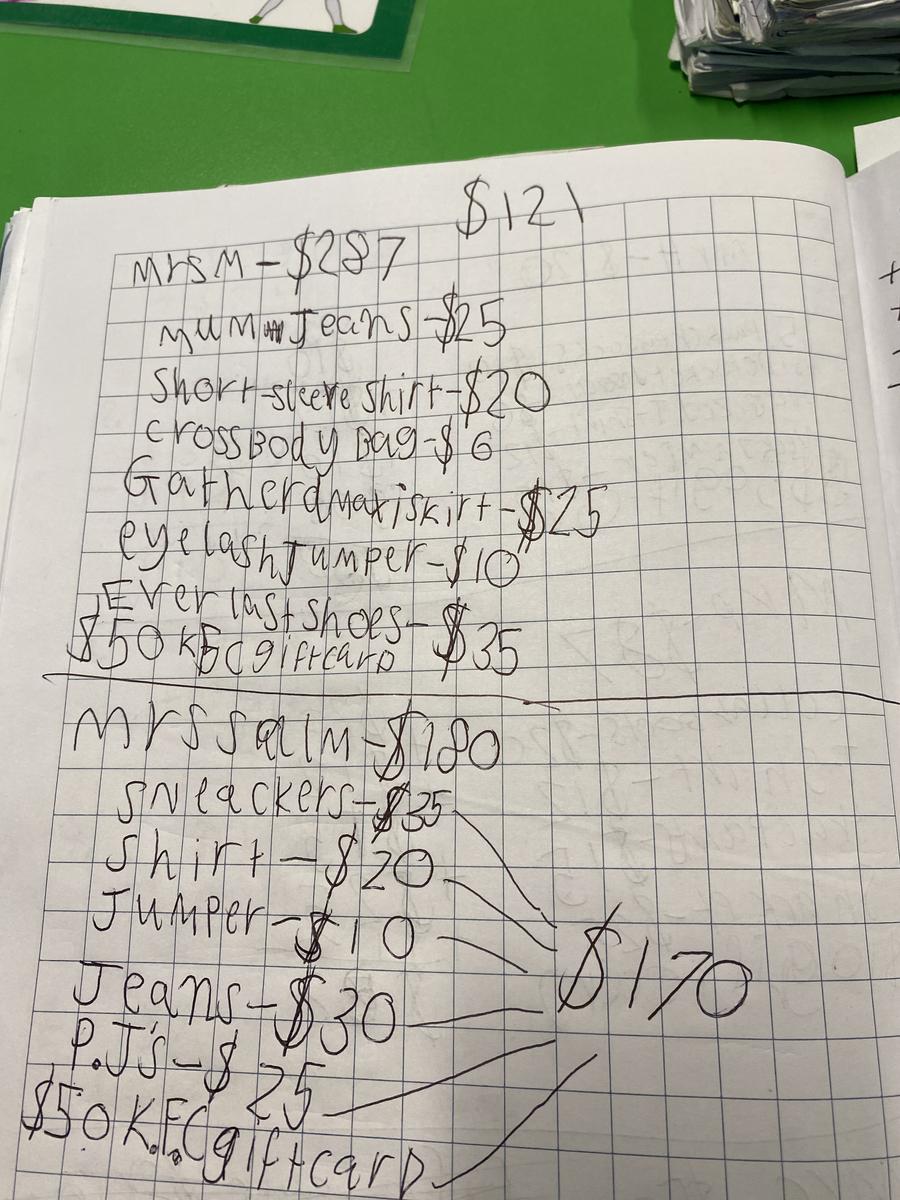 $121
MrsM-$287
MUM Jeans-$25
Short-sleeve shirt-$20
CrossBody Bag-$6
Gatherd maxiskirt-$25
eyelash Jumper-$10
Everlast shoes-$35
$50 KFC giftcard
Mrs salm-$180
Sneackers-$35
Shirt-$20
Jumper-$10
Jeans-$30
$170
P.J's-$25
$50 K.F.C giftcard